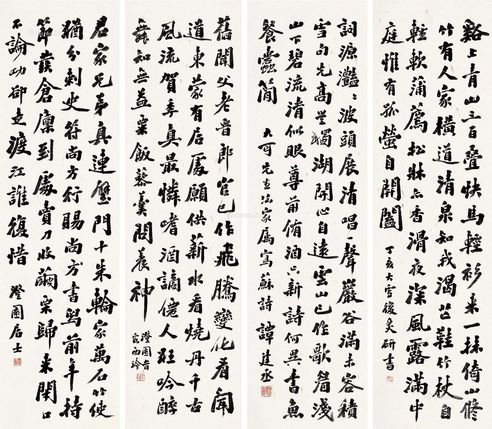 谿上青山三百疊快馬輕衫來一抹倚山修
竹有人家橫道清泉知我渴芒鞋竹杖自
輕軟蒲薦松牀亦香滑夜深風露滿中
庭惟有孤螢自開闔 丁亥大雪後 研書
詞源灩灩波頭展清唱一聲巖谷滿未容積
雪句先高豈獨湖開心自遠雲山已作歌眉淺
山下碧流清似眼尊前侑酒只新詩何異書魚
餐蠹簡 大可先生法家屬寫蘇詩 譚建丞
舊聞父老晉郎官已作飛騰變化看聞
道東蒙有居處願供薪水看燒丹千古
風流賀季真最憐嗜酒謫僊人狂吟醉
舞知無益粟飯藜羹問養神 澄園書
君家兄弟真連璧門十朱輪家萬石竹使
猶分刺史符尚方行賜尚方書舄前年持
節發倉廩到處賣刀收繭栗歸來閉口
不論功卻走渡江誰復惜 澄園居士